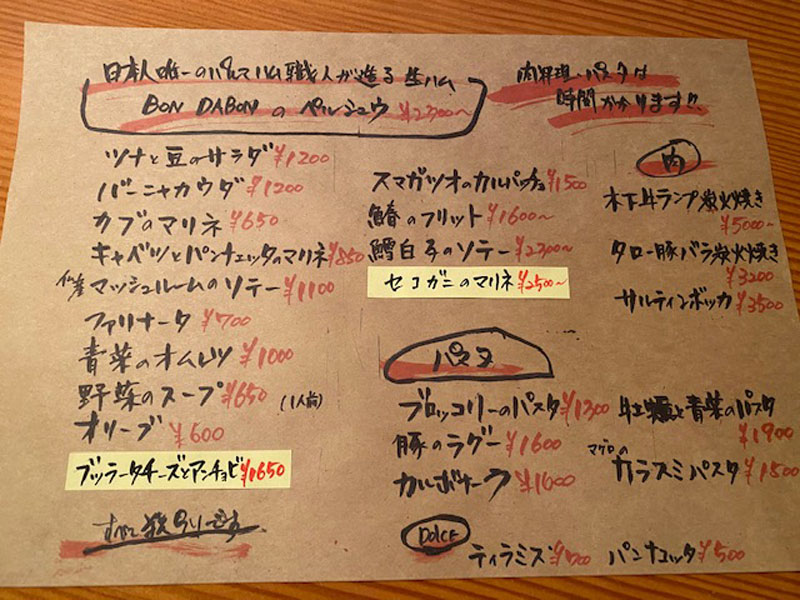 日本人唯一のパルマハム職人が造る生ハム
BON DABONのペルシュウ ¥2300〜
肉料理・パスタは
時間かかります!!
ツナと豆のサラダ ¥1200
バーニャカウダ ¥1200
カブのマリネ ¥650
キャベツとパンチェッタのマリネ ¥850
仙産マッシュルームのソテー ¥1100
ファリナータ ¥700
青菜のオムレツ ¥1000
野菜のスープ ¥650 (1人前)
オリーブ ¥600
ブッラータチーズとアンチョビ ¥1650
すべて税別です。
スマガツオのカルパッチョ ¥1500
鰆のフリット ¥1600〜
鱈白子のソテー ¥2300〜
セコガニのマリネ ¥2500〜
肉
木下牛ランプ炭火焼き
¥5000〜
タロー豚バラ炭火焼き
¥3200
サルティンボッカ ¥3500
パスタ
ブロッコリーのパスタ ¥1300
豚のラグー ¥1600
カルボナーラ ¥1600
牡蠣と青菜のパスタ
¥1900
マグロの
カラスミパスタ ¥1500
DOLCE
ティラミス ¥700
パンナコッタ ¥500